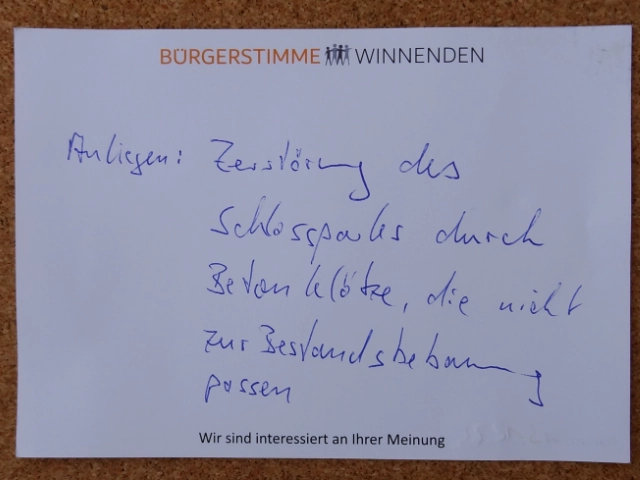 BÜRGERSTIMME WINNENDEN
Anliegen: Zerstörung des
Schlossparks durch
Betonklötze, die nicht
zur Bestandsbebauung
passen
Wir sind interessiert an Ihrer Meinung